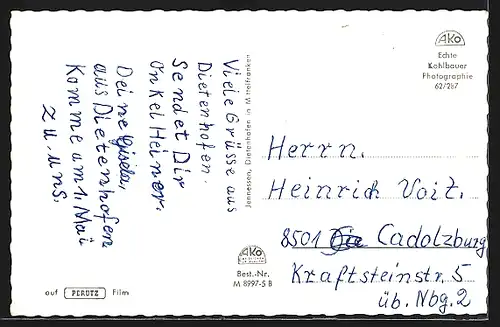 Viele Grüsse aus
Dietenhofen.
Sendet Dir
Onkel Heiner.
Deine Gisela,
aus Dietenhofen
Komme am 1. Mai
zu uns.
auf PERUTZ Film
Jennessen, Dietenhofen in Mittelfranken
AKO
Best.-Nr.
M 8997-5 B
AKO
Echte
Kohlbauer
Photographie
62/287
Herrn.
Heinrich Voit.
8501 Cadolzburg
Kraftsteinstr. 5
üb. Nbg. 2